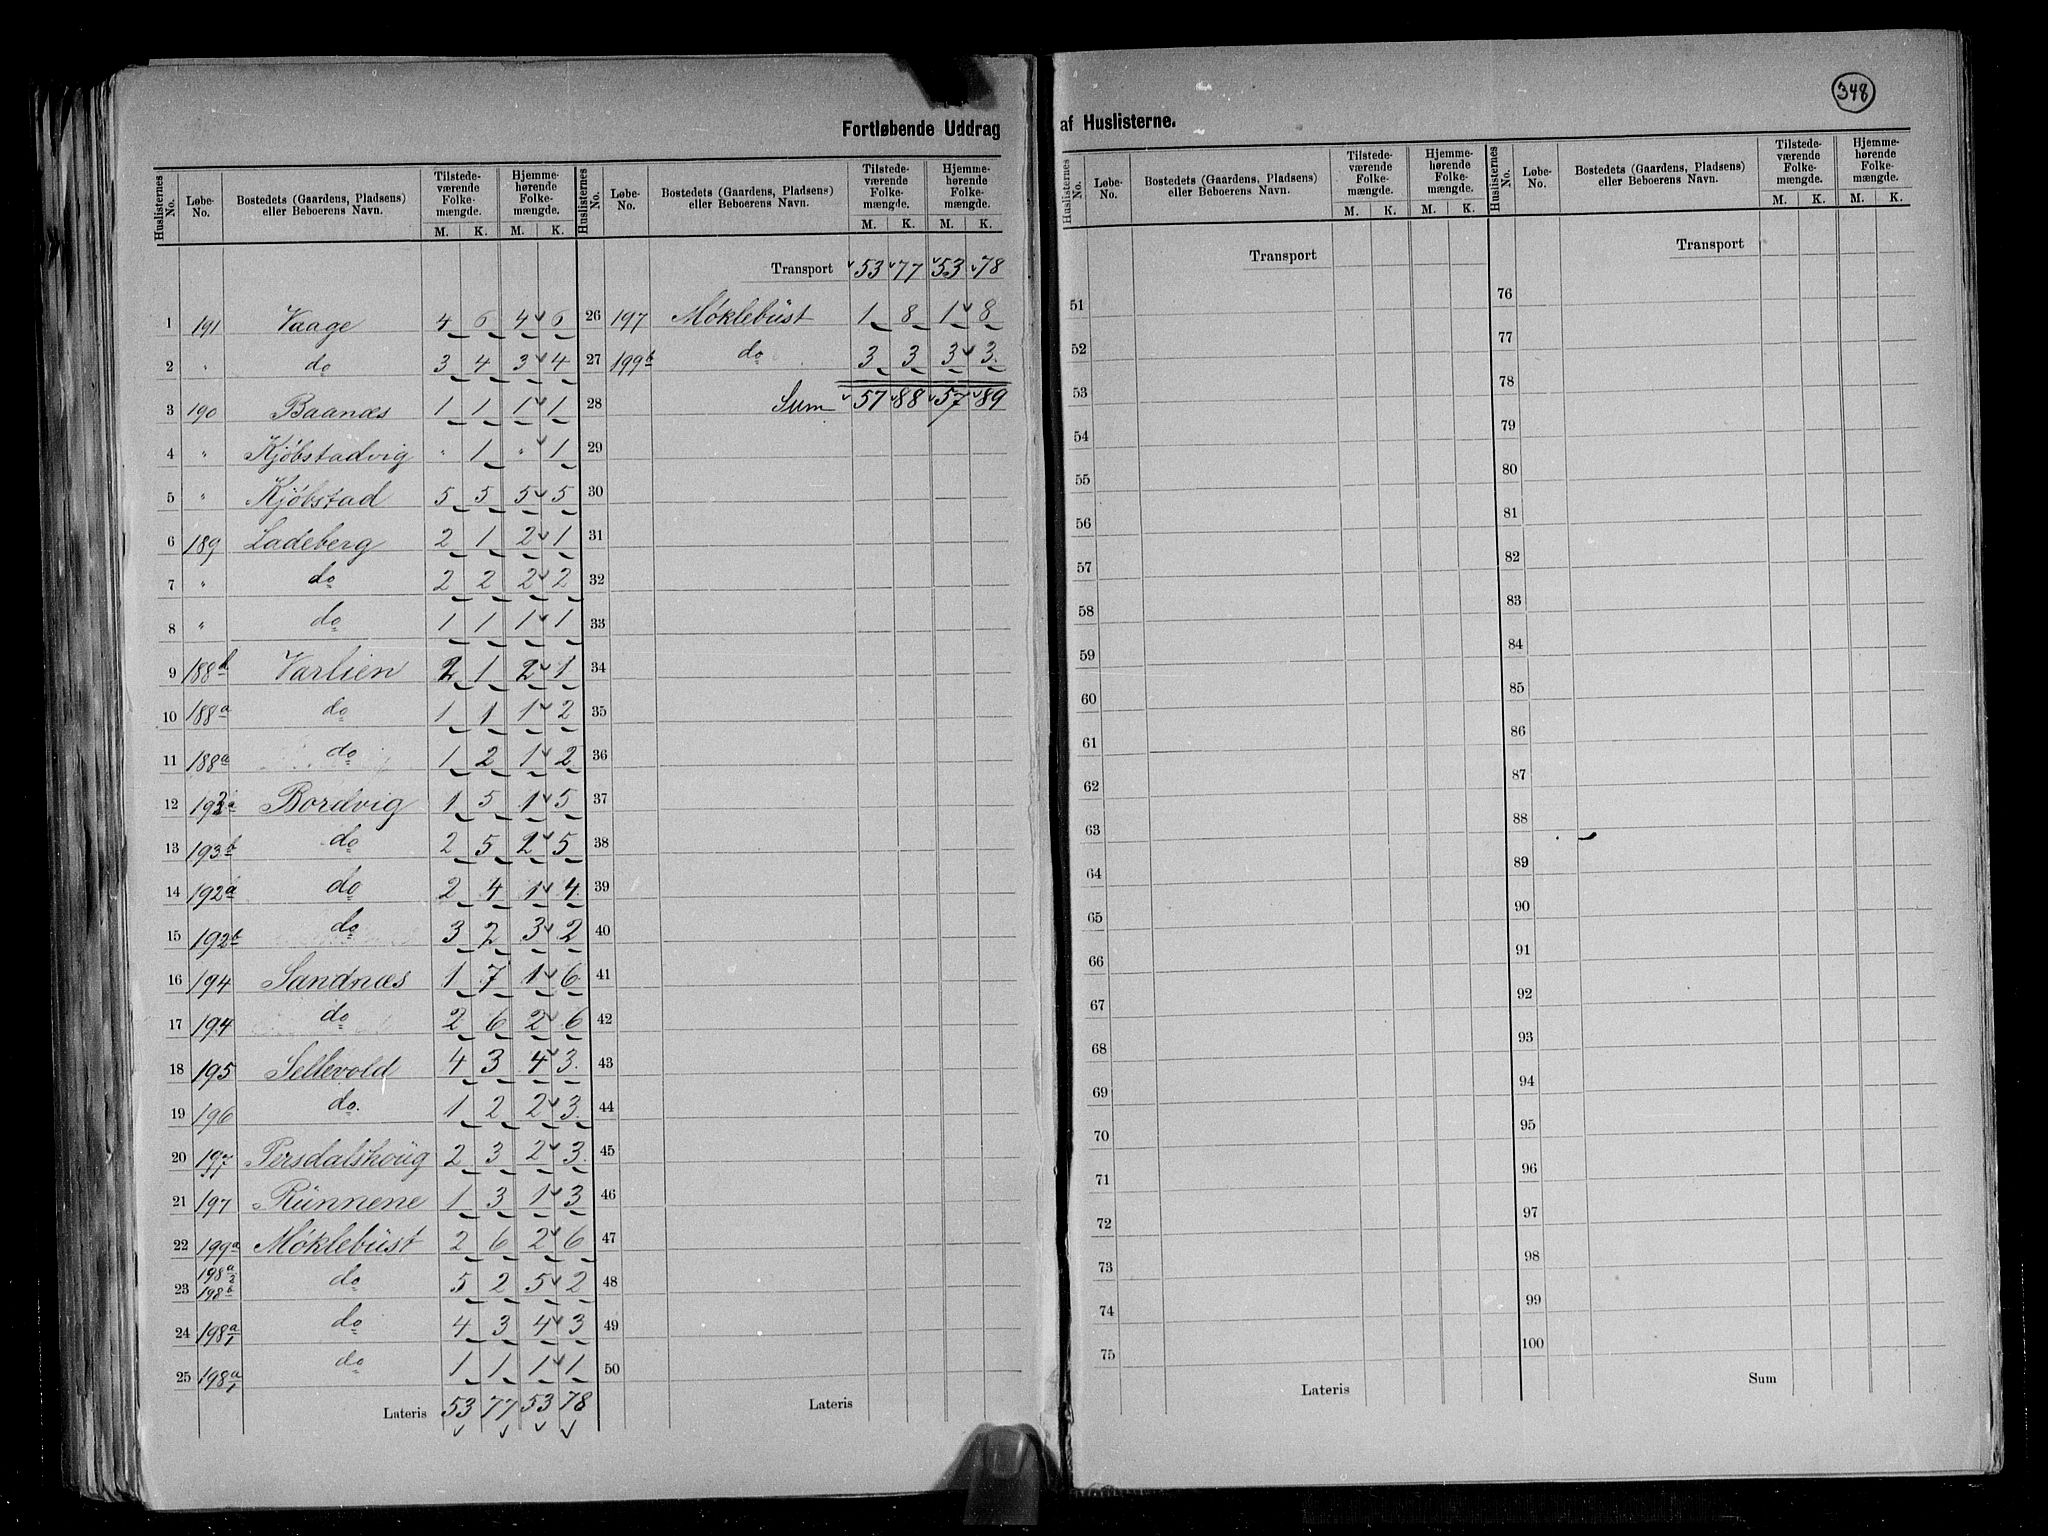 348
Fortløbende Uddrag af Huslisterne.
Huslisternes No. | Løbe-No. | Bostedets (Gaardens, Pladsens) eller Beboerens Navn. | Tilstedeværende Folkemængde. M. K. | Hjemmehørende Folkemængde. M. K.
1 191 Vaage 4 6 4 6
2 " do 3 4 3 4
3 190 Baanæs 1 1 1 1
4 " Kjøbstadvig " 1 " 1
5 " Kjøbstad 5 5 5 5
6 189 Ladeberg 2 1 2 1
7 " do 2 2 2 2
8 " do 1 1 1 1
9 188b Varlien 2 1 2 1
10 188a do 1 1 1 2
11 188a do 1 2 1 2
12 193a Bordvig 1 5 1 5
13 193b do 2 5 2 5
14 192a do 2 4 1 4
15 192b do 3 2 3 2
16 194 Sandnæs 1 7 1 6
17 194 do 2 6 2 6
18 195 Sellevold 4 3 4 3
19 196 do. 1 2 2 3
20 197 Persdalshoüg 2 3 2 3
21 197 Rünnene 1 3 1 3
22 199a Møklebüst 2 6 2 6
23 198a/2 198b do 5 2 5 2
24 198a/1 do 4 3 4 3
25 198a/1 do 1 1 1 1
Lateris 53 77 53 78
Huslisternes No. | Løbe-No. | Bostedets (Gaardens, Pladsens) eller Beboerens Navn. | Tilstedeværende Folkemængde. M. K. | Hjemmehørende Folkemængde. M. K.
Transport 53 77 53 78
26 197 Møklebüst 1 8 1 8
27 199b do 3 3 3 3
28 Sum 57 88 57 89
29
30
31
32
33
34
35
36
37
38
39
40
41
42
43
44
45
46
47
48
49
50
Lateris
Huslisternes No. | Løbe-No. | Bostedets (Gaardens, Pladsens) eller Beboerens Navn. | Tilstedeværende Folkemængde. M. K. | Hjemmehørende Folkemængde. M. K.
Transport
51
52
53
54
55
56
57
58
59
60
61
62
63
64
65
66
67
68
69
70
71
72
73
74
75
Lateris
Huslisternes No. | Løbe-No. | Bostedets (Gaardens, Pladsens) eller Beboerens Navn. | Tilstedeværende Folkemængde. M. K. | Hjemmehørende Folkemængde. M. K.
Transport
76
77
78
79
80
81
82
83
84
85
86
87
88
89
90
91
92
93
94
95
96
97
98
99
100
Sum